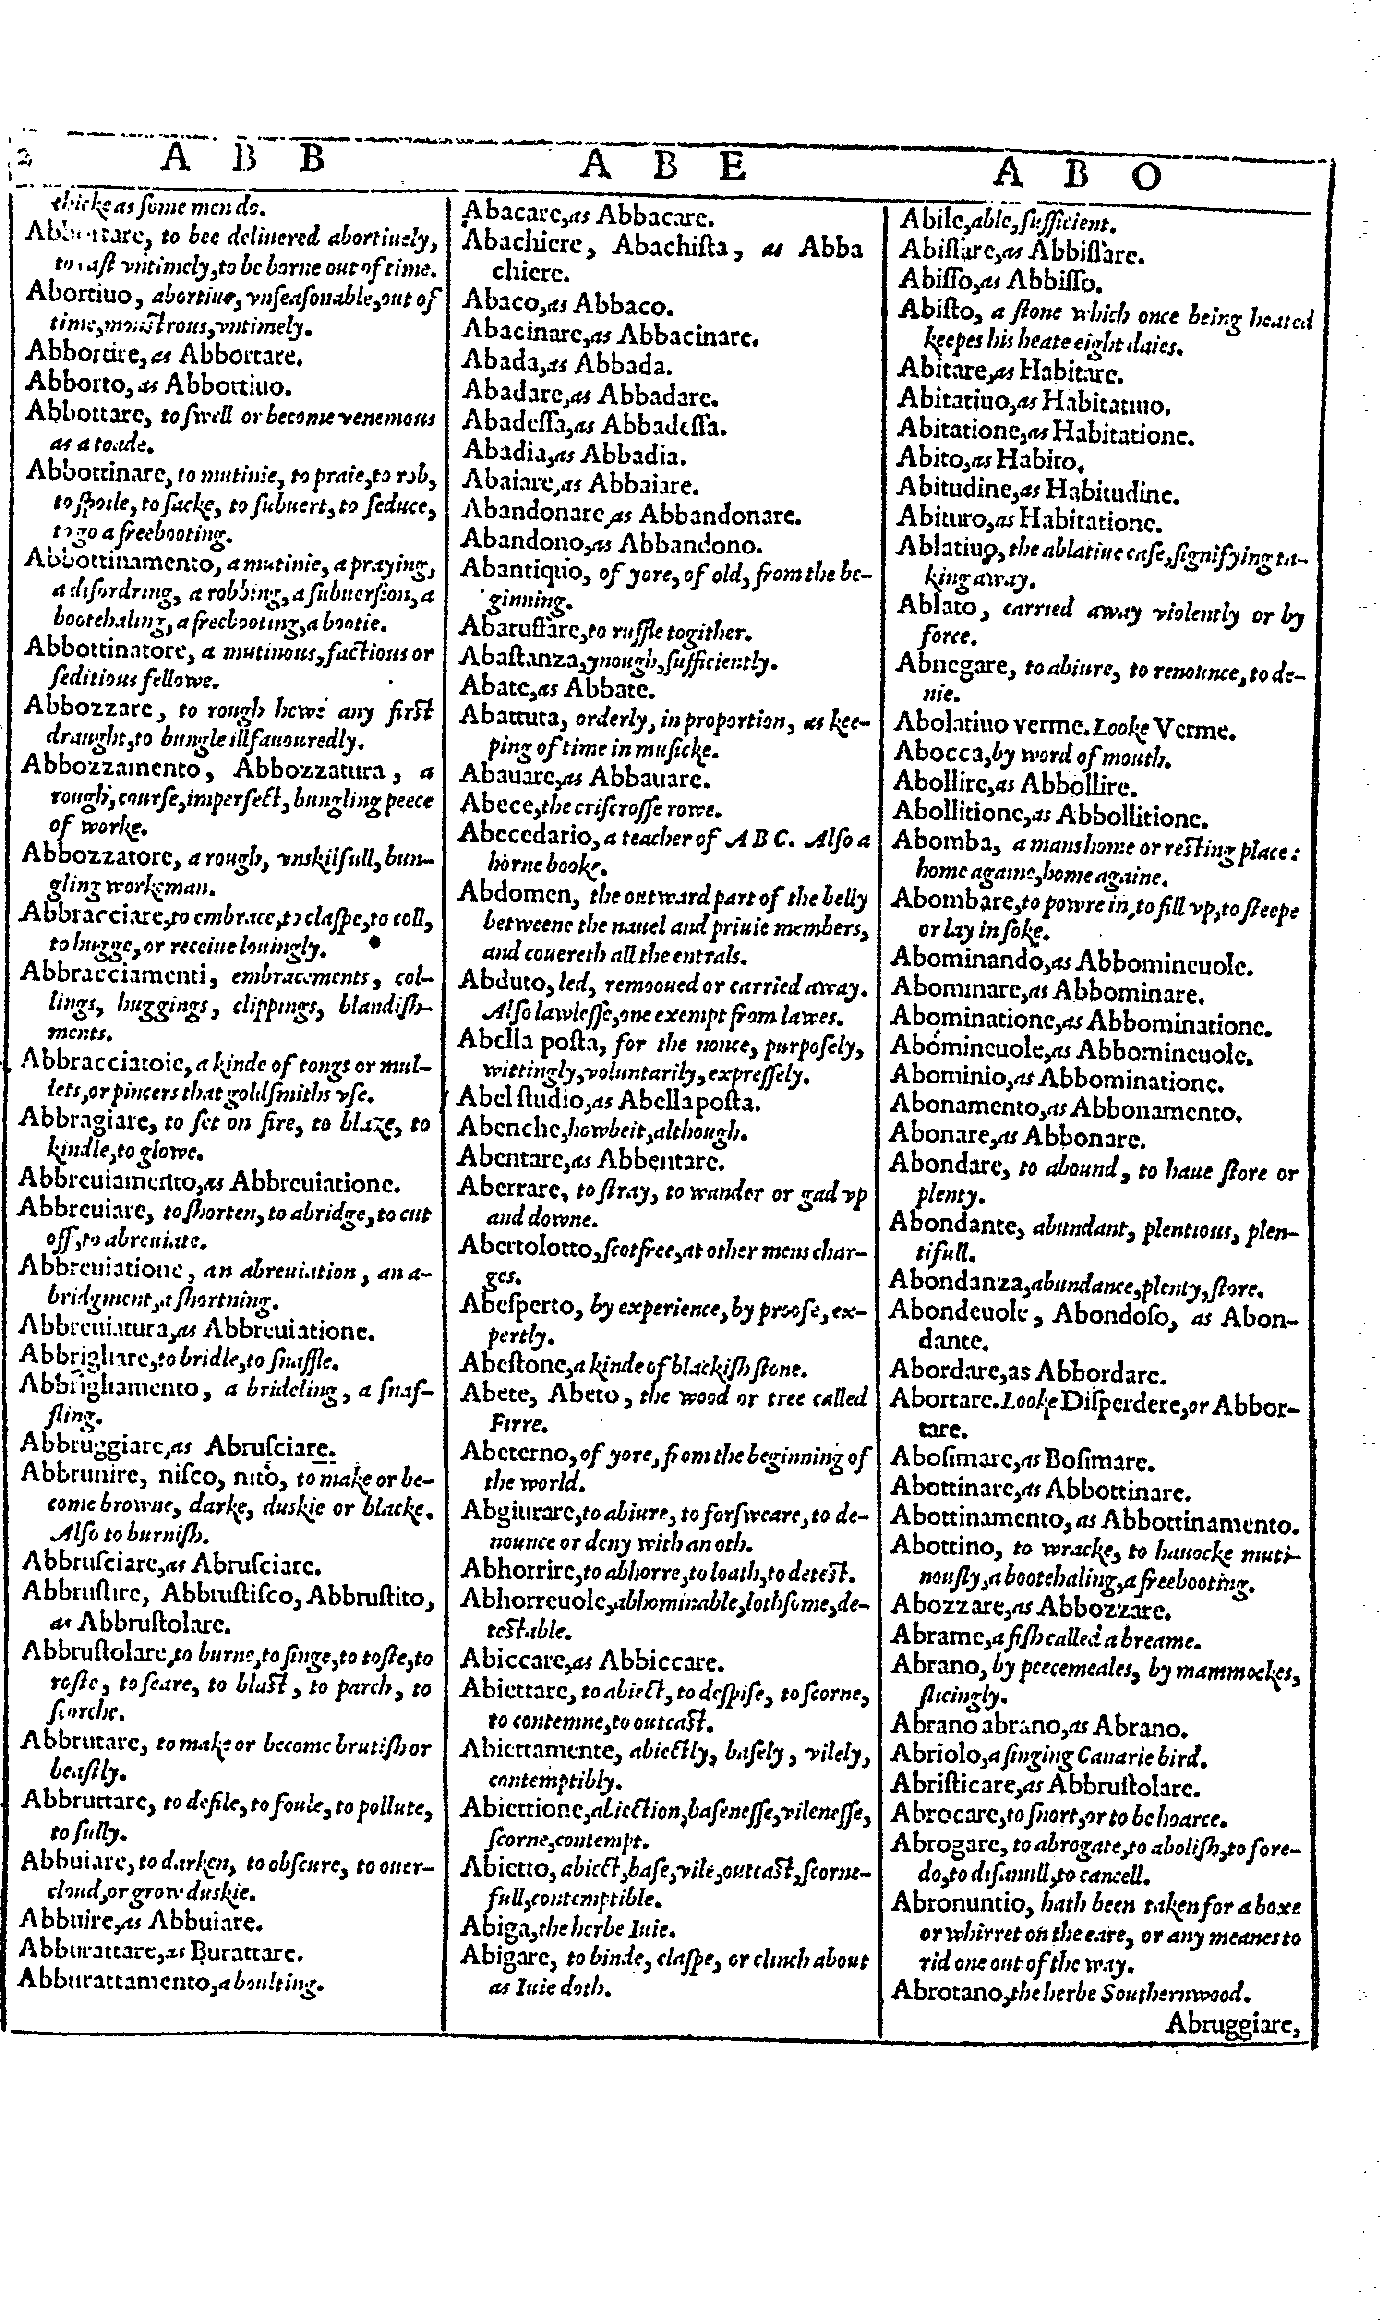 2 A B B A B E A B O
thicke as ſome men do.
Abbortare, to bee deliuered abortiuely,
to caſt vntimely, to be borne out of time.
Abortiuo, abortiue, vnſeaſonable, out of
time, monſtrous, vntimely.
Abbortire, as Abbortare.
Abborto, as Abbortiuo.
Abbottare, to ſwell or become venemous
as a toade.
Abbottinare, to mutinie, to praie, to rob,
to ſpoile, to ſacke, to ſubuert, to ſeduce,
to go a freebooting.
Abbottinamento, a mutinie, a praying,
a diſordring, a robbing, a ſubuerſion, a
bootehaling, a freebooting, a bootie.
Abbottinatore, a mutinous, factious or
ſeditious fellowe.
Abbozzare, to rough hewe any firſt
draught, to bungle illfauouredly.
Abbozzamento, Abbozzatura, a
rough, courſe, imperfect, bungling peece
of worke.
Abbozzatore, a rough, vnskilfull, bun-
gling workeman.
Abbracciare, to embrace, to claſpe, to coll,
to hugge, or receiue louingly.
Abbracciamenti, embracements, col-
lings, huggings, clippings, blandiſh-
ments.
Abbracciatoie, a kinde of tongs or mul-
lets, or pincers that goldſmiths vſe.
Abbragiare, to ſet on fire, to blaze, to
kindle, to glowe.
Abbreuiamento, as Abbreuiatione.
Abbreuiare, to ſhorten, to abridge, to cut
off, to abreuiate.
Abbreuiatione, an abreuiation, an a-
bridgment, a ſhortning.
Abbreuiatura, as Abbreuiatione.
Abbrigliare, to bridle, to ſnaffle.
Abbrigliamento, a brideling, a ſnaf-
fling.
Abbruggiare, as Abruſciare.
Abbrunire, niſco, nito, to make or be-
come browne, darke, duskie or blacke.
Alſo to burniſh.
Abbruſciare, as Abruſciare.
Abbruſtire, Abbruſtiſco, Abbruſtito,
as Abbruſtolare.
Abbruſtolare, to burne, to ſinge, to toſte, to
roſte, to ſeare, to blaſt, to parch, to
ſcorche.
Abbrutare, to make or become brutiſh or
beaſtly.
Abbruttare, to defile, to foule, to pollute,
to ſully.
Abbuiare, to darken, to obſcure, to ouer-
cloud, or grow duskie.
Abbuire, as Abbuiare.
Abburattare, as Burattare.
Abburattamento, a boulting.
Abacare, as Abbacare.
Abachiere, Abachiſta, as Abba
chiere.
Abaco, as Abbaco.
Abacinare, as Abbacinare.
Abada, as Abbada.
Abadare, as Abbadare.
Abadeſſa, as Abbadeſſa.
Abadia, as Abbadia.
Abaiare, as Abbaiare.
Abandonare, as Abbandonare.
Abandono, as Abbandono.
Abantiquo, of yore, of old, from the be-
ginning.
Abaruffare, to ruffle togither.
Abaſtanza, ynough, ſufficiently.
Abate, as Abbate.
Abattuta, orderly, in proportion, as kee-
ping of time in muſicke.
Abauare, as Abbauare.
Abece, the criſcroſſe rowe.
Abecedario, a teacher of A B C. Alſo a
horne booke.
Abdomen, the outward part of the belly
betweene the nauel and priuie members,
and couereth all the entrals.
Abduto, led, remooued or carried away.
Alſo lawleſſe, one exempt from lawes.
Abella poſta, for the nonce, purpoſely,
wittingly, voluntarily, expreſſely.
Abel ſtudio, as Abella poſta.
Abenche, howbeit, although.
Abentare, as Abbentare.
Aberrare, to ſtray, to wander or gad vp
and downe.
Abertolotto, ſcotfree, at other mens char-
ges.
Abeſperto, by experience, by proofe, ex-
pertly.
Abeſtone, a kinde of blackiſh ſtone.
Abete, Abeto, the wood or tree called
Firre.
Abeterno, of yore, from the beginning of
the world.
Abgiurare, to abiure, to forſweare, to de-
nounce or deny with an oth.
Abhorrire, to abhorre, to loath, to deteſt.
Abhorreuole, abhominable, lothſome, de-
teſtable.
Abiccare, as Abbiccare.
Abiettare, to abiect, to deſpiſe, to ſcorne,
to contemne, to outcaſt.
Abiettamente, abiectly, baſely, vilely,
contemptibly.
Abiettione, abiection, baſeneſſe, vileneſſe,
ſcorne, contempt.
Abietto, abiect, baſe, vile, outcaſt, ſcorne-
full, contemptible.
Abiga, the herbe Iuie.
Abigare, to binde, claſpe, or clinch about
as Iuie doth.
Abile, able, ſufficient.
Abiſſare, as Abbiſſare.
Abiſſo, as Abbiſſo.
Abiſto, a ſtone which once being heated
keepes his heate eight daies.
Abitare, as Habitare.
Abitatiuo, as Habitatiuo.
Abitatione, as Habitatione.
Abito, as Habito.
Abitudine, as Habitudine.
Abituro, as Habitatione.
Ablatiuo, the ablatiue caſe, ſignifying ta-
king away.
Ablato, carried away violently or by
force.
Abnegare, to abiure, to renounce, to de-
nie.
Abolatiuo verme. Looke Verme.
Abocca, by word of mouth.
Abollire, as Abbollire.
Abollitione, as Abbollitione.
Abomba, a mans home or reſting place:
home againe, home againe.
Abombare, to powre in, to fill vp, to ſteepe
or lay in ſoke.
Abominando, as Abbomineuole.
Abominare, as Abbominare.
Abominatione, as Abbominatione.
Abomineuole, as Abbomineuole.
Abominio, as Abbominatione.
Abonamento, as Abbonamento.
Abonare, as Abbonare.
Abondare, to abound, to haue ſtore or
plenty.
Abondante, abundant, plentious, plen-
tifull.
Abondanza, abundance, plenty, ſtore.
Abondeuole, Abondoſo, as Abon-
dante.
Abordare, as Abbordare.
Abortare. Looke Diſperdere, or Abbor-
tare.
Aboſimare, as Boſimare.
Abottinare, as Abbottinare.
Abottinamento, as Abbottinamento.
Abottino, to wracke, to hauocke muti-
nouſly, a bootehaling, a freebooting.
Abozzare, as Abbozzare.
Abrame, a fiſh called a breame.
Abrano, by peecemeales, by mammockes,
ſlicingly.
Abrano abrano, as Abrano.
Abriolo, a ſinging Canarie bird.
Abriſticare, as Abbruſtolare.
Abrocare, to ſnort, or to be hoarce.
Abrogare, to abrogate, to aboliſh, to fore-
do, to diſanull, to cancell.
Abronuntio, hath been taken for a boxe
or whirret on the eare, or any meanes to
rid one out of the way.
Abrotano, the herbe Southernwood.
Abruggiare,